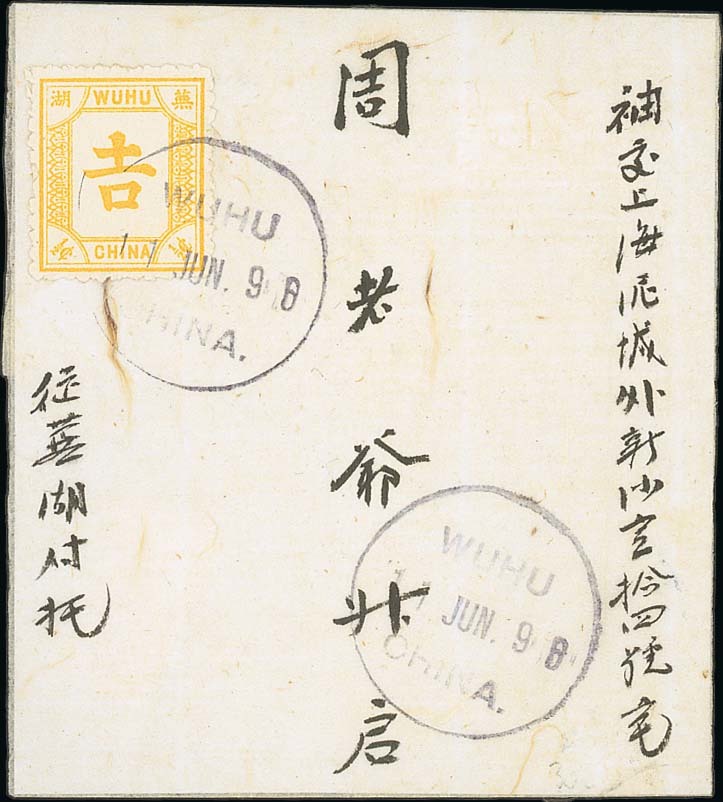 袖交上海泥城外新沙拾四號宅
周老爺升启
蕪湖付托
湖 WUHU 蕪
𠮷
CHINA
WUHU
JUN. 9
CHINA.
WUHU
JUN. 9
CHINA.